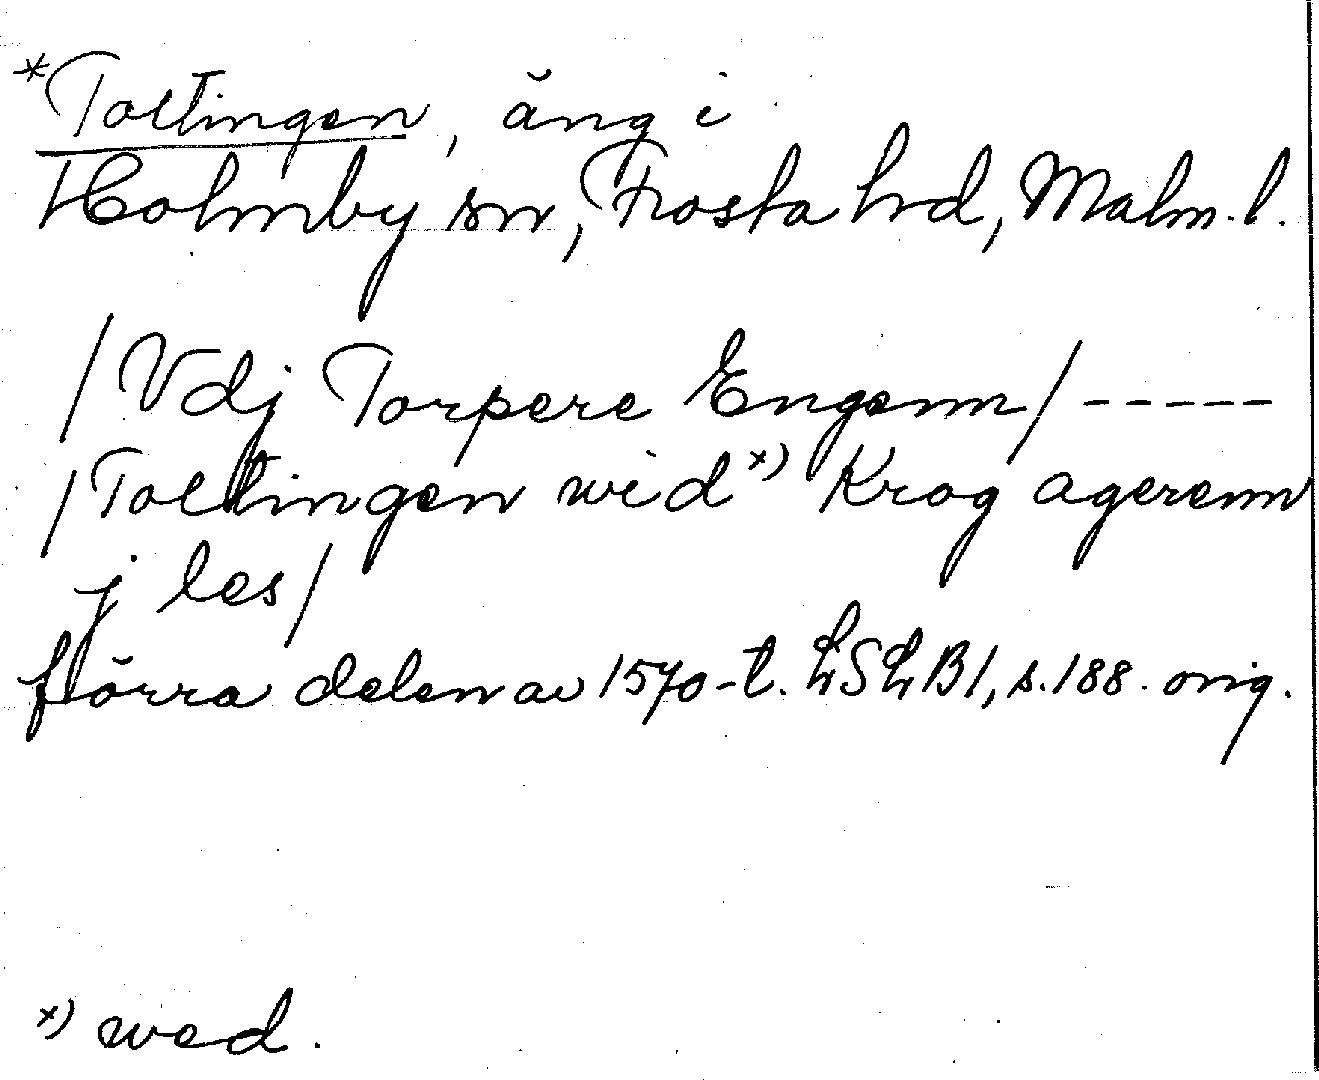 *Toltingen, äng i
Holmby sn, Frosta hd, Malm. l.
/Vdj Torpere Engenn/ -----
/Toltingen wid *) Krog agerenn
j les/
förra delen av 1570-t. LSLB1, s. 188. orig.
*) wed.